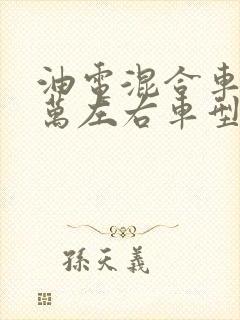 油電混合車
萬左右車型
孫天義